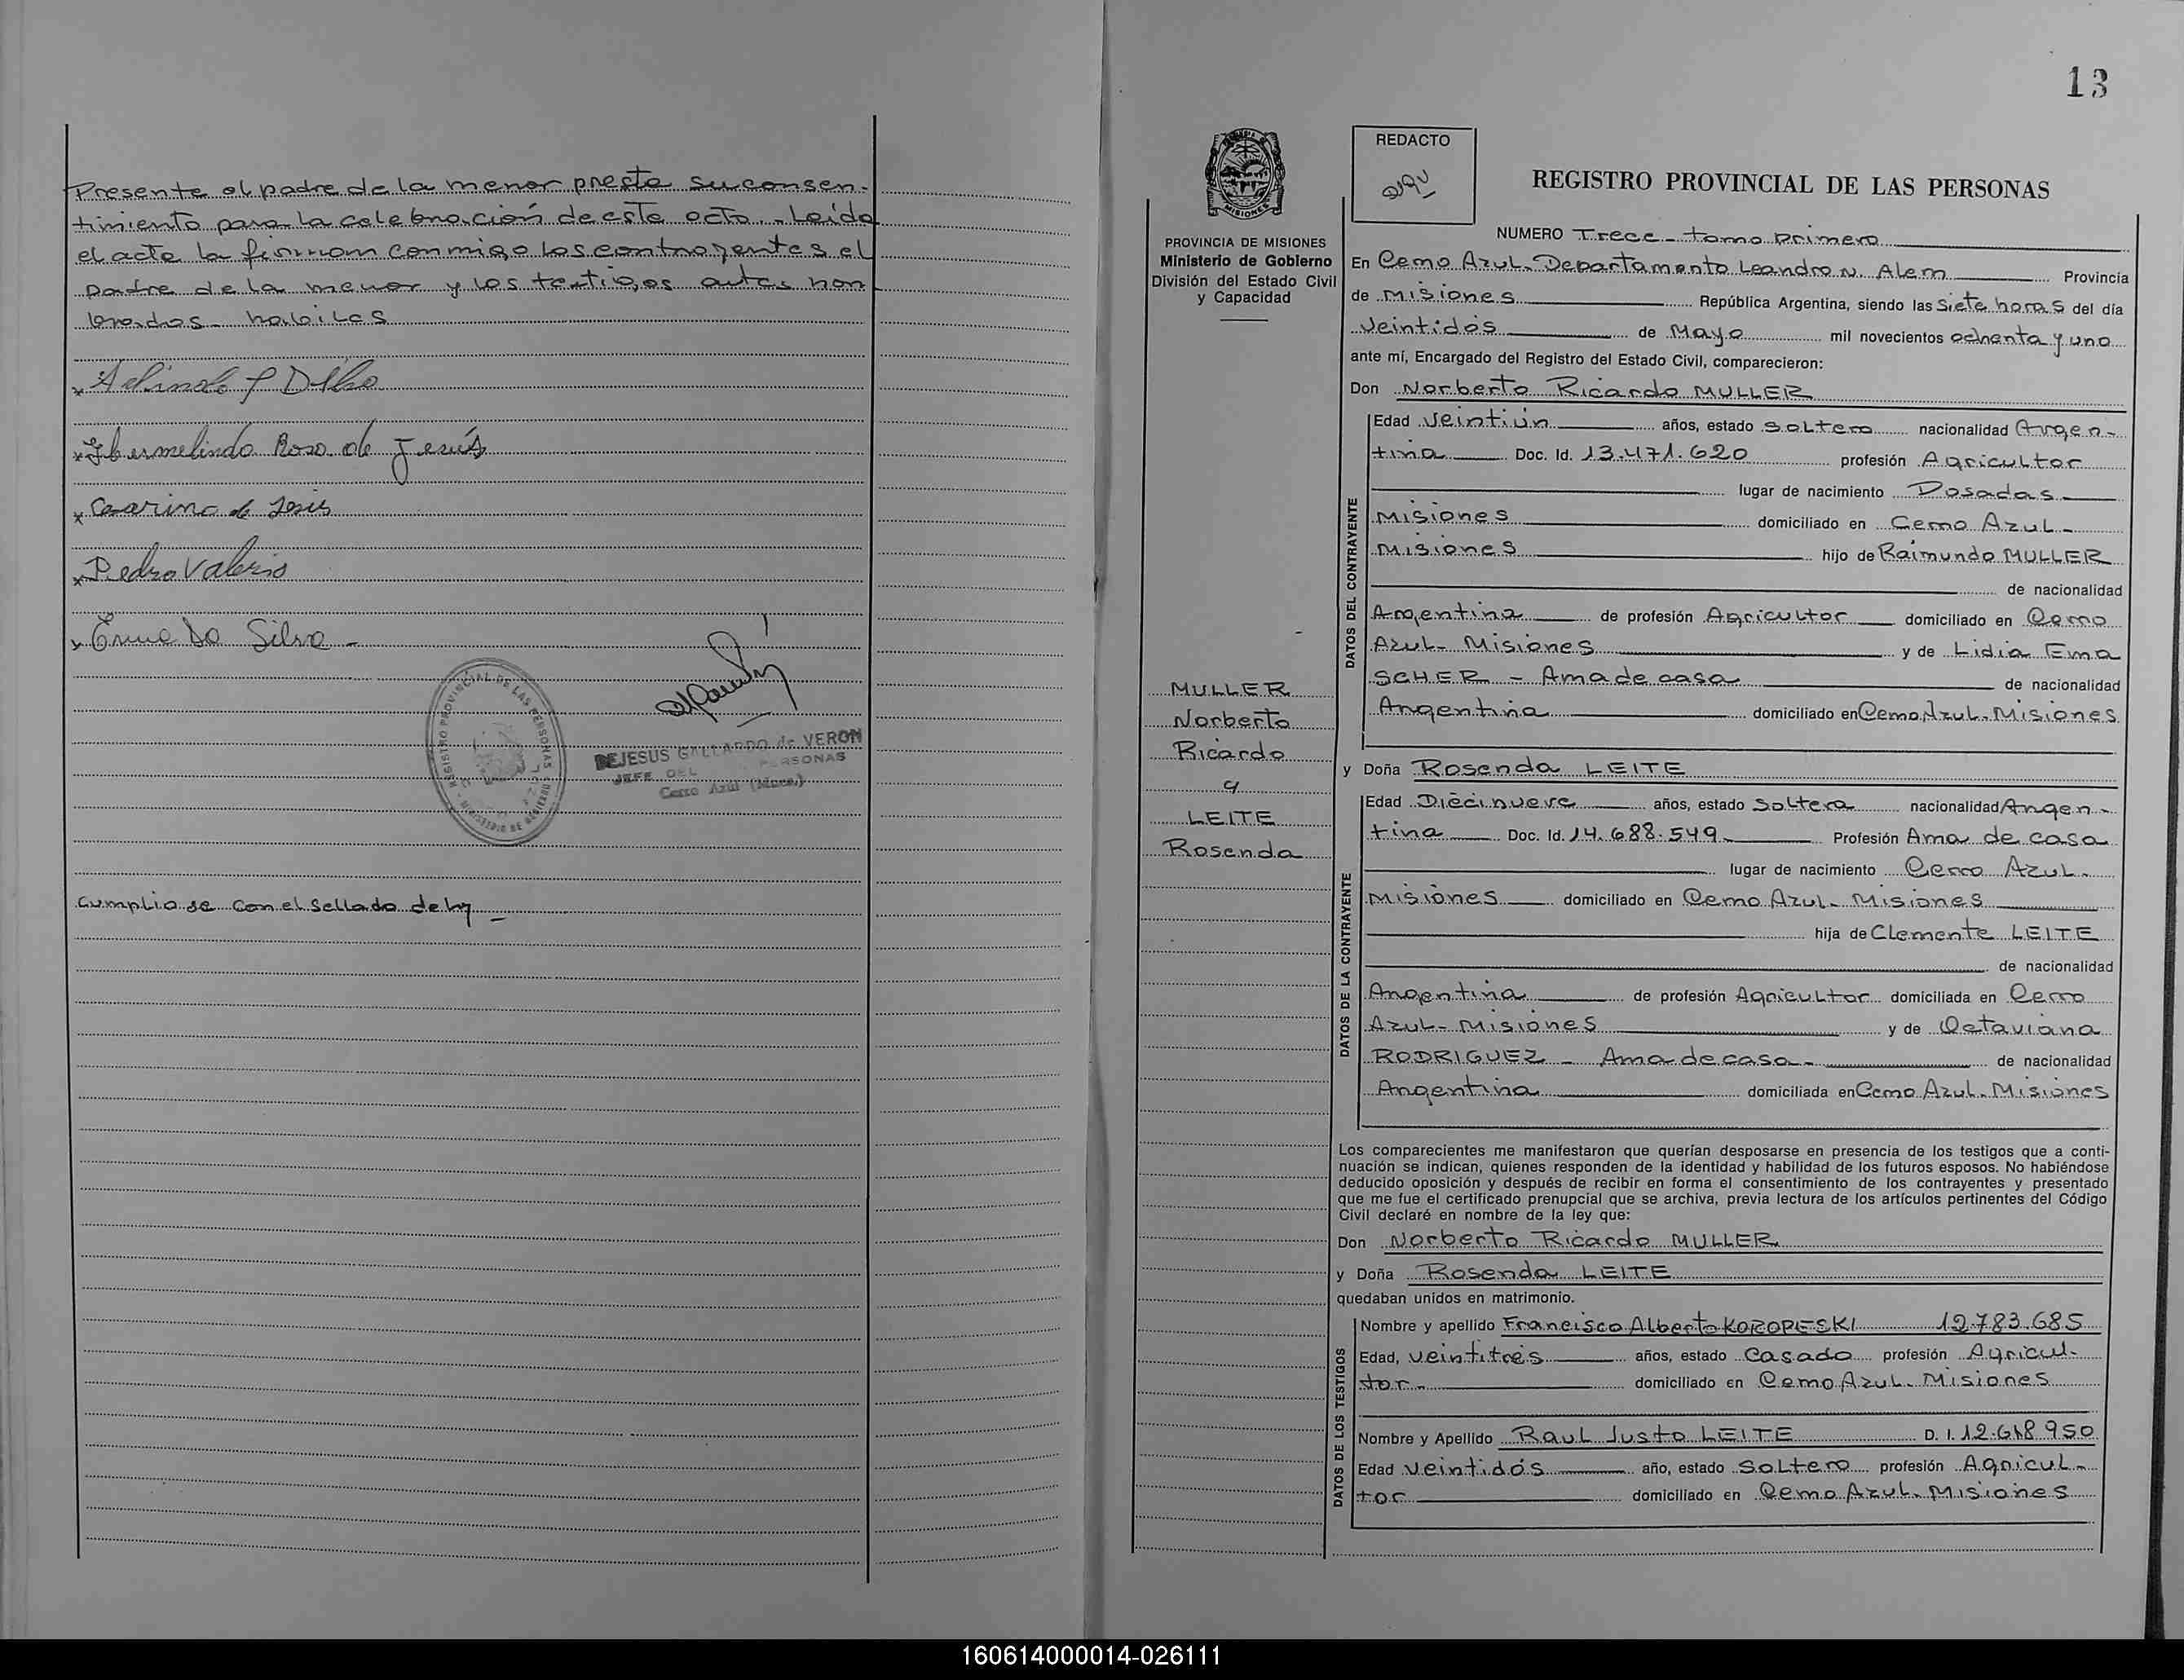 Presente el padre de la menor presta su consen-
timiento para la celebración de este acto.- Leída
el acta la firman conmigo los contrayentes el
padre de la menor y los testigos antes nom
brados- habiles
x Hermelinda Rosa de Jesús
x Pedro Valerio
x Do Silva -
REGISTRO PROVINCIAL DE LAS PERSONAS
DEJESUS GALLARDO de VERON
JEFE DEL PERSONAS
Cerro Azul (Mnes.)
Cumpliose con el sellado de ley -
13
MISIONES
PROVINCIA DE MISIONES
Ministerio de Gobierno
División del Estado Civil
y Capacidad
MULLER
Norberto
Ricardo
y
LEITE
Rosenda
REDACTO
REGISTRO PROVINCIAL DE LAS PERSONAS
NUMERO Trece - tomo primero
En Cerro Azul. Departamento Leandro N. Alem Provincia
de Misiones República Argentina, siendo las Siete horas del día
Veintidós de Mayo mil novecientos ochenta y uno
ante mí, Encargado del Registro del Estado Civil, comparecieron:
Don Norberto Ricardo MULLER
DATOS DEL CONTRAYENTE
Edad Veintiún años, estado soltero nacionalidad Argen-
tina Doc. Id. 13.471.620 profesión Agricultor
lugar de nacimiento Posadas
Misiones domiciliado en Cerro Azul-
Misiones hijo de Raimundo MULLER
de nacionalidad
Argentina de profesión Agricultor domiciliado en Cerro
Azul- Misiones y de Lidia Ema
SCHER - Ama de casa de nacionalidad
Argentina domiciliado en Cerro Azul-Misiones
y Doña Rosenda LEITE
DATOS DE LA CONTRAYENTE
Edad Diecinueve años, estado Soltera nacionalidad Argen-
tina Doc. Id. 14.688.549 Profesión Ama de casa
lugar de nacimiento Cerro Azul-
Misiones domiciliado en Cerro Azul- Misiones
hija de Clemente LEITE
de nacionalidad
Argentina de profesión Agricultor domiciliada en Cerro
Azul- Misiones y de Octaviana
RODRIGUEZ - Ama de casa- de nacionalidad
Argentina domiciliada en Cerro Azul. Misiones
Los comparecientes me manifestaron que querían desposarse en presencia de los testigos que a conti-
nuación se indican, quienes responden de la identidad y habilidad de los futuros esposos. No habiéndose
deducido oposición y después de recibir en forma el consentimiento de los contrayentes y presentado
que me fue el certificado prenupcial que se archiva, previa lectura de los artículos pertinentes del Código
Civil declaré en nombre de la ley que:
Don Norberto Ricardo MULLER
y Doña Rosenda LEITE
quedaban unidos en matrimonio.
DATOS DE LOS TESTIGOS
Nombre y apellido Francisco Alberto KOROPESKI 12.783.685
Edad, veintitrés años, estado Casado profesión Agricul-
tor- domiciliado en Cerro Azul- Misiones
Nombre y Apellido Raul Justo LEITE D. I. 12.618.950
Edad Veintidós año, estado Soltero profesión Agricul-
tor domiciliado en Cerro Azul. Misiones
160614000014-026111